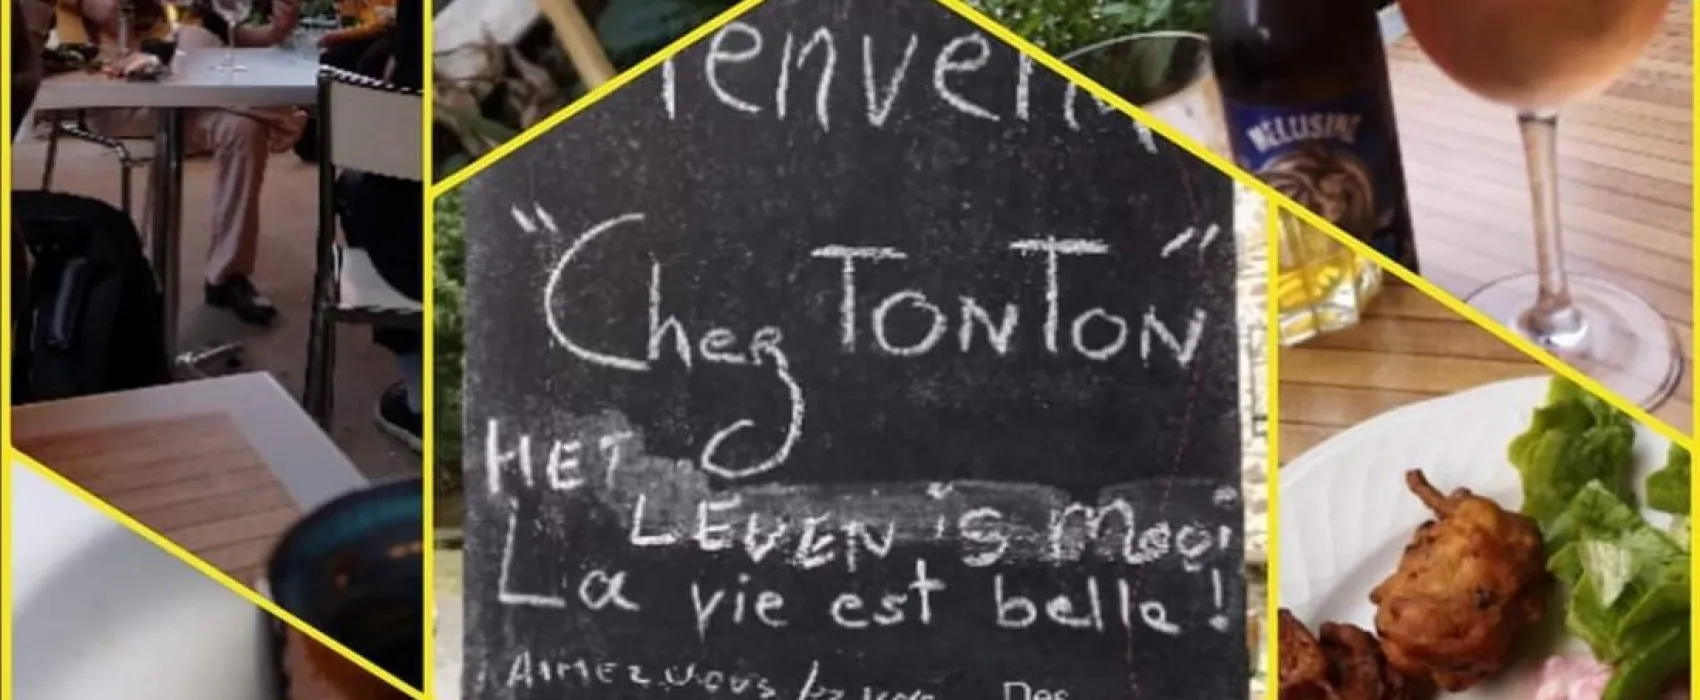 ienvenu
"Chez TONTON"
HET
LEVEN is Mooi
La vie est belle!
AIMEZ VOUS
Des
MÉLUSINE